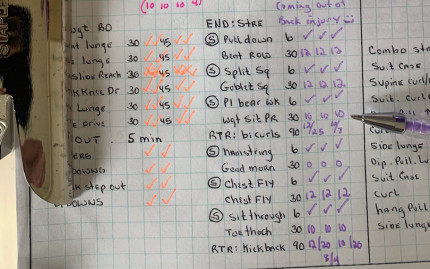 (10 10 10 4)
Coming out of
END: STRE Back injury
wgt BD
lunge 30 ✓ 45 ✓✓
lunge 30 ✓ 45 ✓✓
Slide Reach 30 45
Knee Dr 30 ✓ 45 ✓✓
Lunge 30 ✓ 45 ✓✓
Drive 30 ✓ 45 ✓✓
OUT 5 min
ERG ✓ ✓
DOWNS ✓ ✓
step out ✓ ✓
DOWNS ✓ ✓
Ⓢ Pull down 6 ✓ ✓ ✓
Bent Row 30 12 12 13
Ⓢ Split Sq 6 ✓ ✓ ✓
Goblet Sq 30 12 12 12
Ⓢ Pl bear wk 6 ✓ ✓ ✓
Wgt Sit PR 30 10 10 10
RTR: bi curls 90 12/25
Ⓢ hamstring 6 ✓ ✓ ✓
Good morn 30 0 0 0
Ⓢ Chest Fly 6 ✓ ✓ ✓
Chest Fly 30 12 12 12
Ⓢ Sit through 6 ✓ ✓ ✓
Toe touch 30 10 10 10
RTR: Kickback 90 12/20 10/20
Combo
Suit Case
Supine curl
Suit. curl
Side lunge
Dip. Pull.
Suit Case
Curl
hang Pull
Side lunge